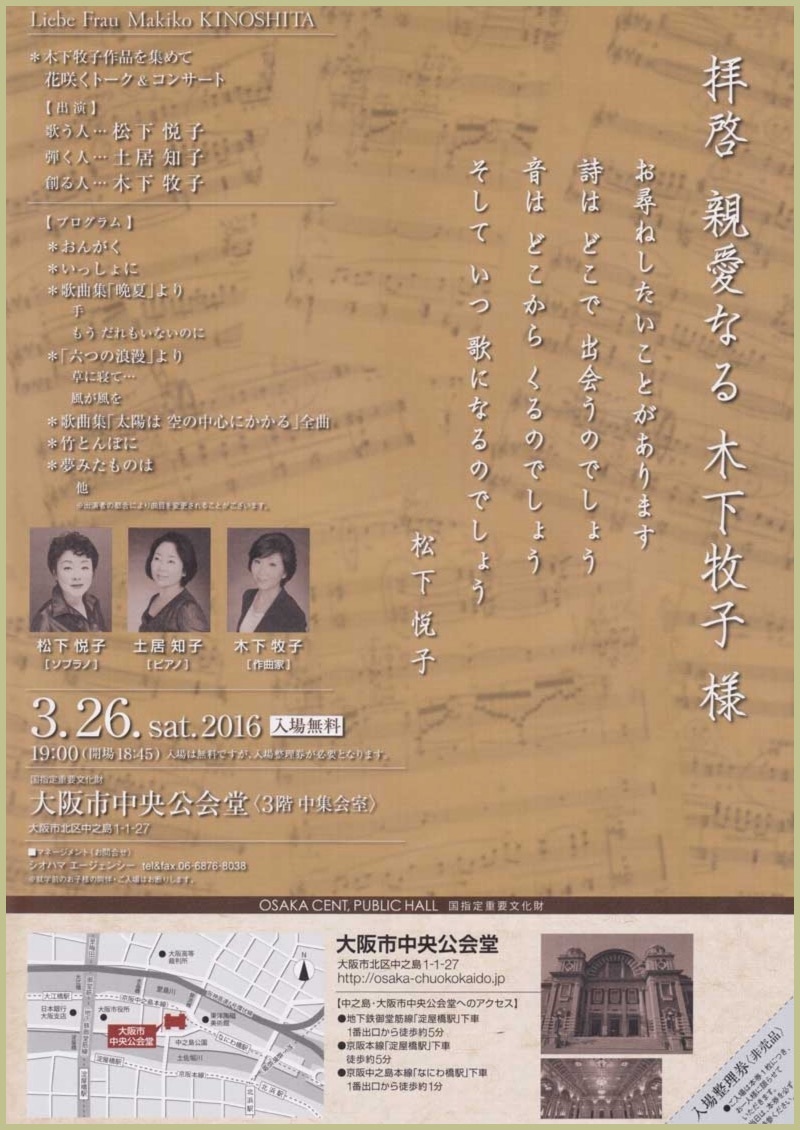 Liebe Frau Makiko KINOSHITA
＊木下牧子作品を集めて
花咲くトーク＆コンサート
【出演】
歌う人…松下悦子
弾く人…土居知子
創る人…木下牧子
【プログラム】
＊おんがく
＊いっしょに
＊歌曲集「晩夏」より
手
もう だれもいないのに
＊「六つの浪漫」より
草に寝て…
風が風を
＊歌曲集「太陽は 空の中心にかかる」全曲
＊竹とんぼに
＊夢みたものは
他
※出演者の都合により曲目を変更されることがございます。
拝啓 親愛なる 木下牧子 様
お尋ねしたいことがあります
詩は どこで 出会うのでしょう
音は どこから くるのでしょう
そして いつ 歌になるのでしょう
松下悦子
松下 悦子
［ソプラノ］
土居 知子
［ピアノ］
木下 牧子
［作曲家］
3.26.sat.2016 入場無料
19:00（開場18:45） 入場は無料ですが、入場整理券が必要となります。
国指定重要文化財
大阪市中央公会堂〈3階 中集会室〉
大阪市北区中之島1-1-27
■マネージメント（お問合せ）
シオハマ エージェンシー tel&fax.06-6876-8038
※就学前のお子様の同伴・ご入場はお断りします。
OSAKA CENT, PUBLIC HALL 国指定重要文化財
大阪高等裁判所
N
堂島川
大江橋駅
京阪中之島線
日本銀行大阪支店
大阪市役所
東洋陶磁美術館
大阪市中央公会堂
なにわ橋駅
中之島公園
土佐堀川
淀屋橋駅
京阪本線
北浜駅
淀屋橋駅
北浜駅
大阪市中央公会堂
大阪市北区中之島1-1-27
http://osaka-chuokokaido.jp
【中之島・大阪市中央公会堂へのアクセス】
●地下鉄御堂筋線「淀屋橋駅」下車
1番出口から徒歩約5分
●京阪本線「淀屋橋駅」下車
徒歩約5分
●京阪中之島線「なにわ橋駅」下車
1番出口から徒歩約1分
入場整理券（非売品）
●ご入場は本券1枚につき、
お一人様に限らせて
いただきます。